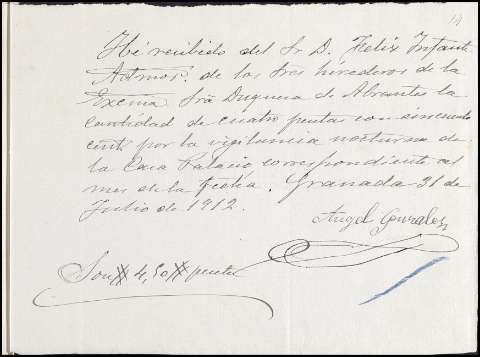 14
He recibido del Sr. D. Felix Infante
Admor. de los tres hirederos de la
Excma Sra Duquesa de Abrantes la
cantidad de cuatro pesetas con cincuenta
cents por la vigilancia nocturna de
la Casa Palacio correspondiente al
mes de la fecha. Granada 31 de
Julio de 1912.
Angel Gonzalez
Son 4,50 pesetas